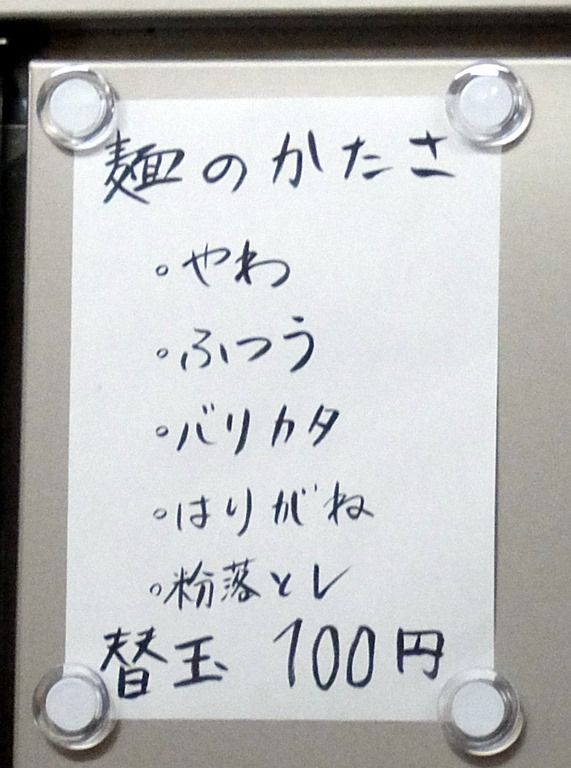 麺のかたさ
。やわ
。ふつう
。バリカタ
。はりがね
。粉落とし
替玉 100円